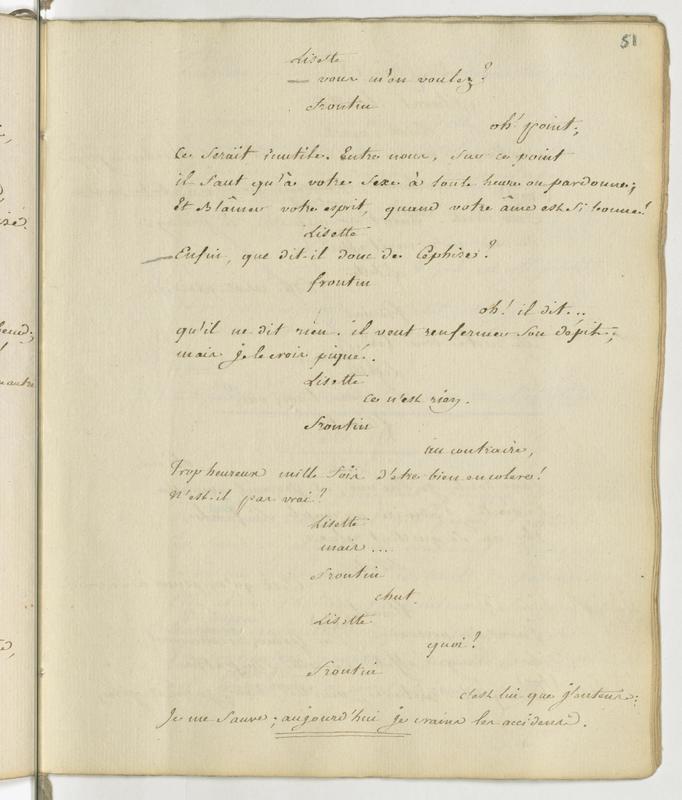 51
Lisette
— vous m'en voulez?
Frontin
oh! point;
Ce serait inutile. Entre nous, sur ce point
il faut qu'à votre sexe à toute heure on pardonne;
Et Blâmer votre esprit, quand votre âme est si bonne!
Lisette
— Enfin, que dit-il donc de Céphise?
frontin
oh! il dit...
qu'il ne dit rien. il veut renfermer son dépit;
mais je le crois piqué.
Lisette
Ce n'est rien.
Frontin
au contraire,
Trop heureux mille fois d'être bien en colere!
N'est-il pas vrai?
Lisette
mais ...
Frontin
chut.
Lisette
quoi?
Frontin
c'est lui que j'entens;
Je me sauve; aujourd'hui je crains les accidens.